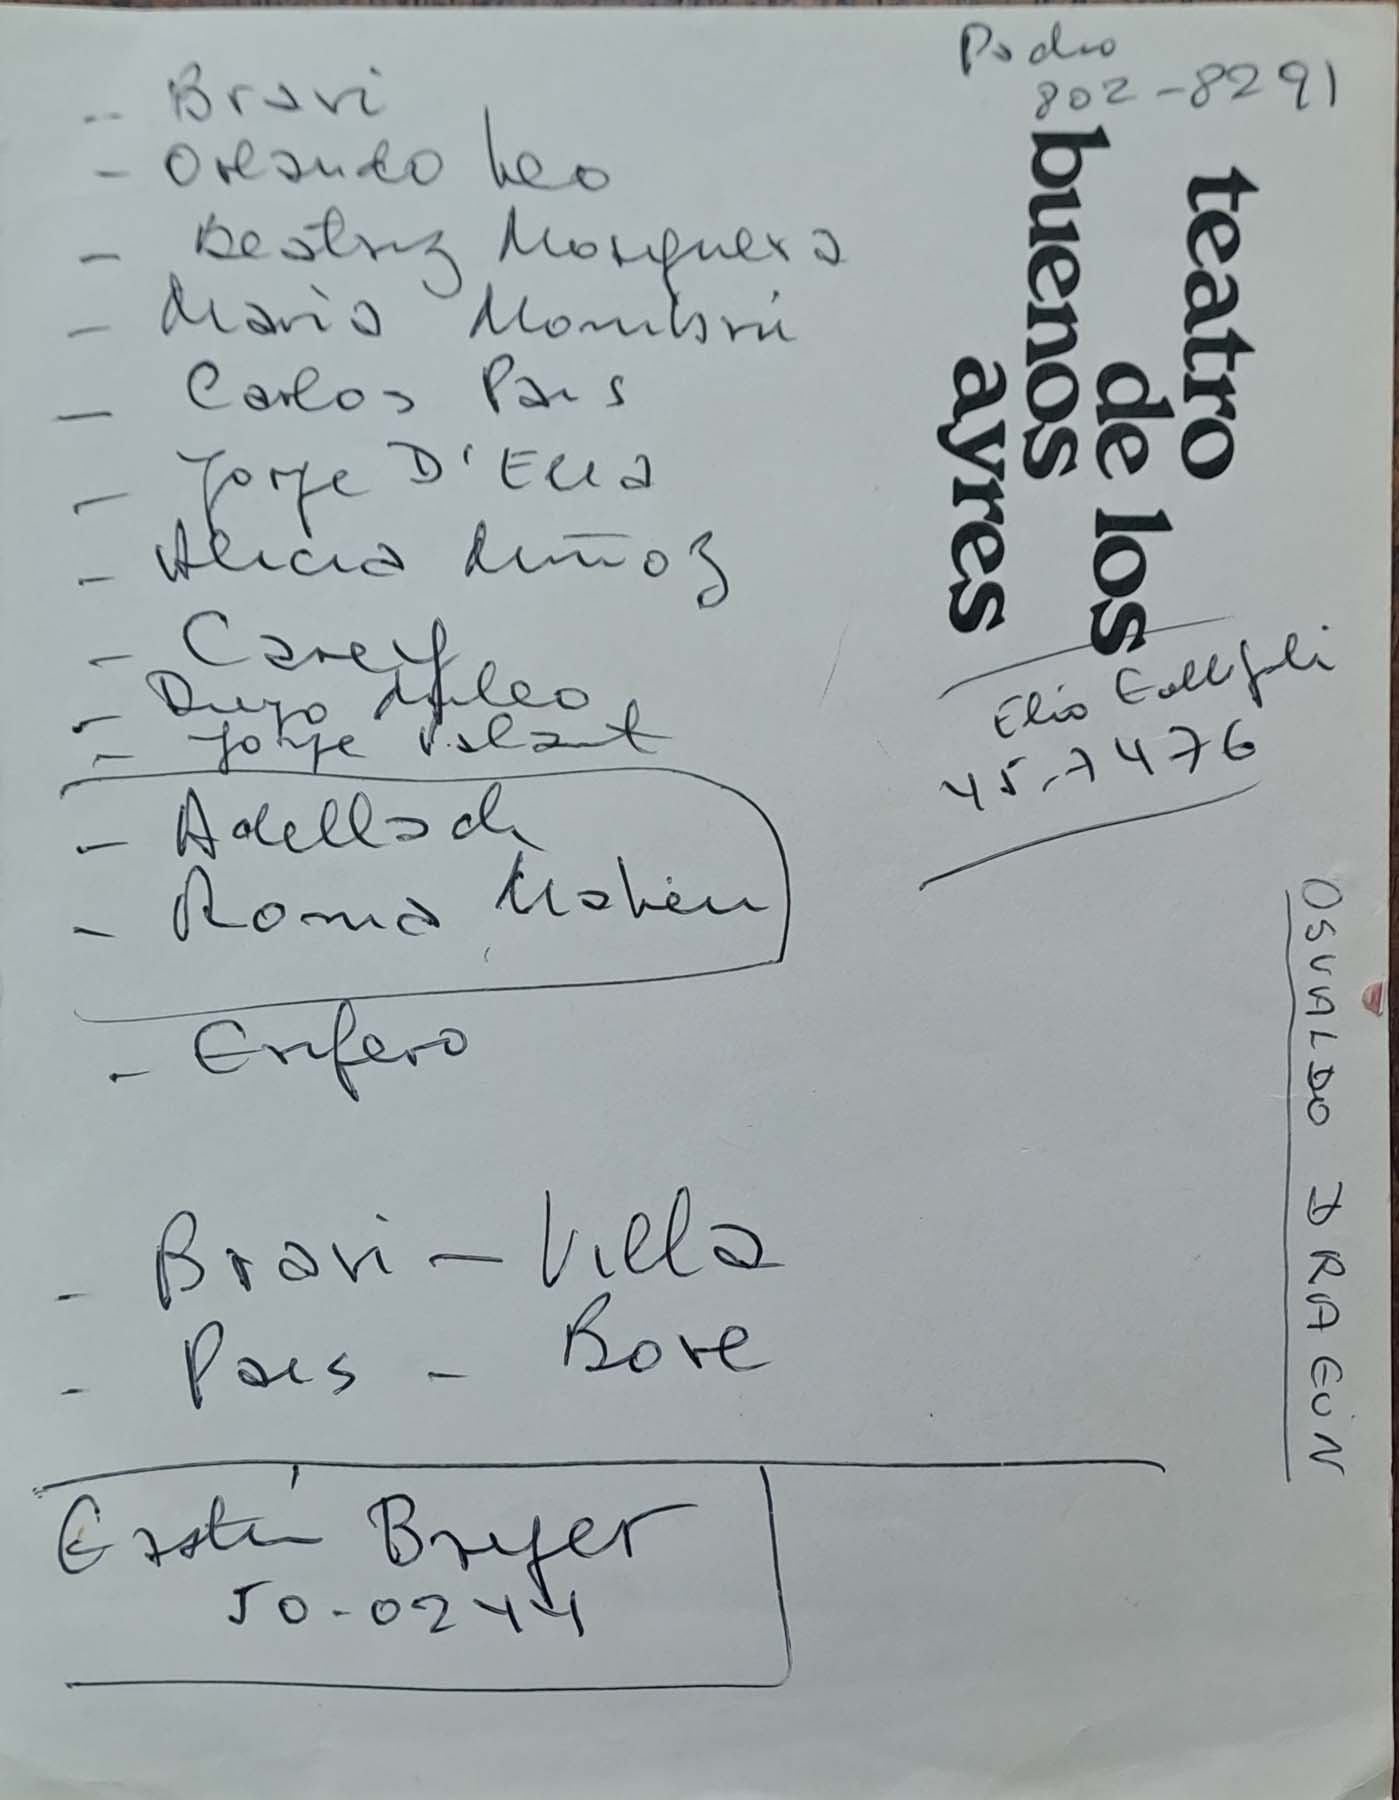 Pedro
802-8291
teatro
de los
buenos
ayres
- Bravi
- Orlando Leo
- Beatriz Mosquera
- Maria Mombrú
- Carlos Pais
- Jorge D'Elia
- Alicia Muñoz
- Carey
- Diego Mileo
- Jorge Palant
- Adellach
- Roma Mahieu
Elio Gallipoli
45-7476
- Enfero
- Bravi - Villa
- Pais - Bove
OSVALDO DRAGÚN
Gastón Breyer
50-0244